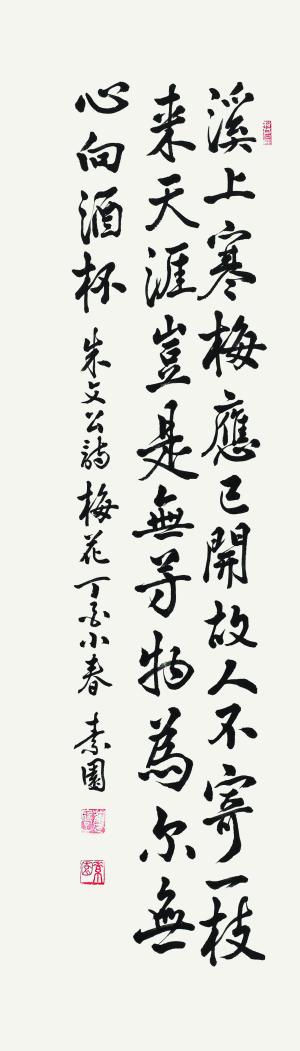 溪上寒梅應已開故人不寄一枝
来天涯豈是無芳物為尔無
心向酒杯 朱文公詩梅花 丁酉小春 素園